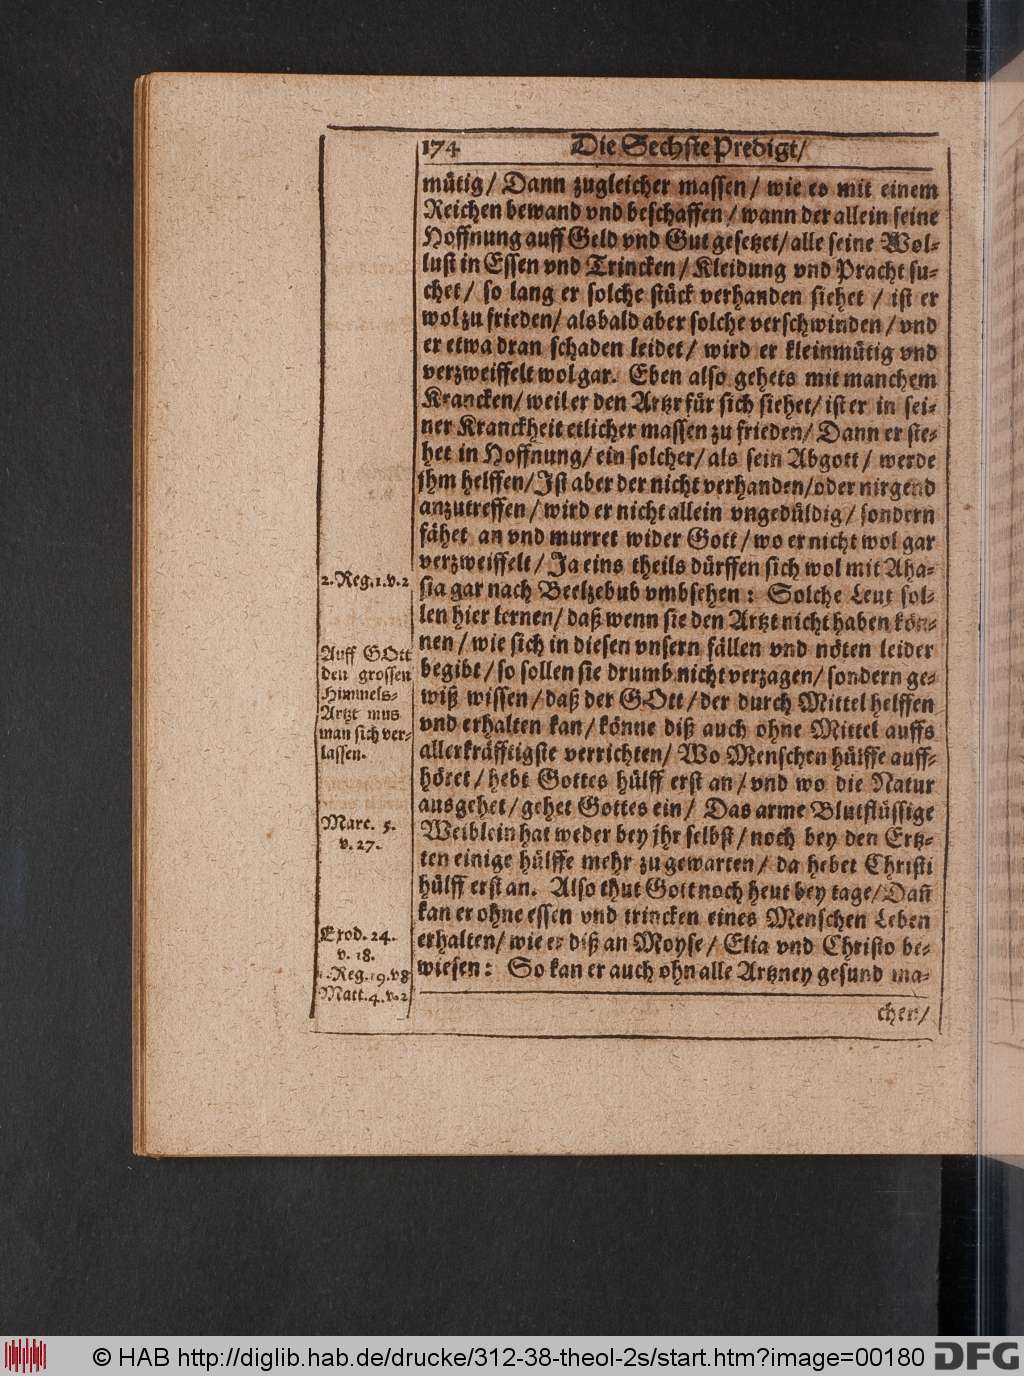 174 Die Sechste Predigt/
mütig/ Dann zugleicher massen/ wie es mit einem
Reichen bewand vnd beschaffen/ wann der allein seine
Hoffnung auff Geld vnd Gut gesetzet/ alle seine Wol-
lust in Essen vnd Trincken/ Kleidung vnd Pracht su-
chet/ so lang er solche stück verhanden siehet / ist er
wol zu frieden/ alsbald aber solche verschwinden/ vnd
er etwa dran schaden leidet/ wird er kleinmütig vnd
verzweiffelt wol gar. Eben also gehets mit manchem
Krancken/ weil er den Artzt für sich siehet/ ist er in sei-
ner Kranckheit etlicher massen zu frieden/ Dann er ste-
het in Hoffnung/ ein solcher/ als sein Abgott/ werde
jhm helffen/ Ist aber der nicht verhanden/ oder nirgend
anzutreffen/ wird er nicht allein vngedüldig/ sondern
fähet an vnd murret wider Gott/ wo er nicht wol gar
verzweiffelt/ Ja eins theils dürffen sich wol mit Aha-
sia gar nach Beelzebub vmbsehen: Solche Leut sol-
len hier lernen/ daß wenn sie den Artzt nicht haben kön-
nen/ wie sich in diesen vnsern fällen vnd nöten leider
begibt/ so sollen sie drumb nicht verzagen/ sondern ge-
wiß wissen/ daß der GOtt/ der durch Mittel helffen
vnd erhalten kan/ könne diß auch ohne Mittel auffs
allerkräfftigste verrichten/ Wo Menschen hülffe auff-
höret/ hebt Gottes hülff erst an/ vnd wo die Natur
ausgehet/ gehet Gottes ein/ Das arme Blutflüssige
Weiblein hat weder bey jhr selbst/ noch bey den Ertz-
ten einige hülffe mehr zu gewarten/ da hebet Christi
hülff erst an. Also thut Gott noch heut bey tage/ Dañ
kan er ohne essen vnd trincken eines Menschen Leben
erhalten/ wie er diß an Moyse/ Elia vnd Christo be-
wiesen: So kan er auch ohn alle Artzney gesund ma-
chen/
2. Reg. 1. v. 2
Auff GOtt
den grossen
Himmels-
Artzt mus
man sich ver-
lassen.
Marc. 5.
v. 27.
Exod. 24.
v. 18.
Reg. 19. v 8
Matt. 4. v. 2
© HAB http://diglib.hab.de/drucke/312-38-theol-2s/start.htm?image=00180
DFG